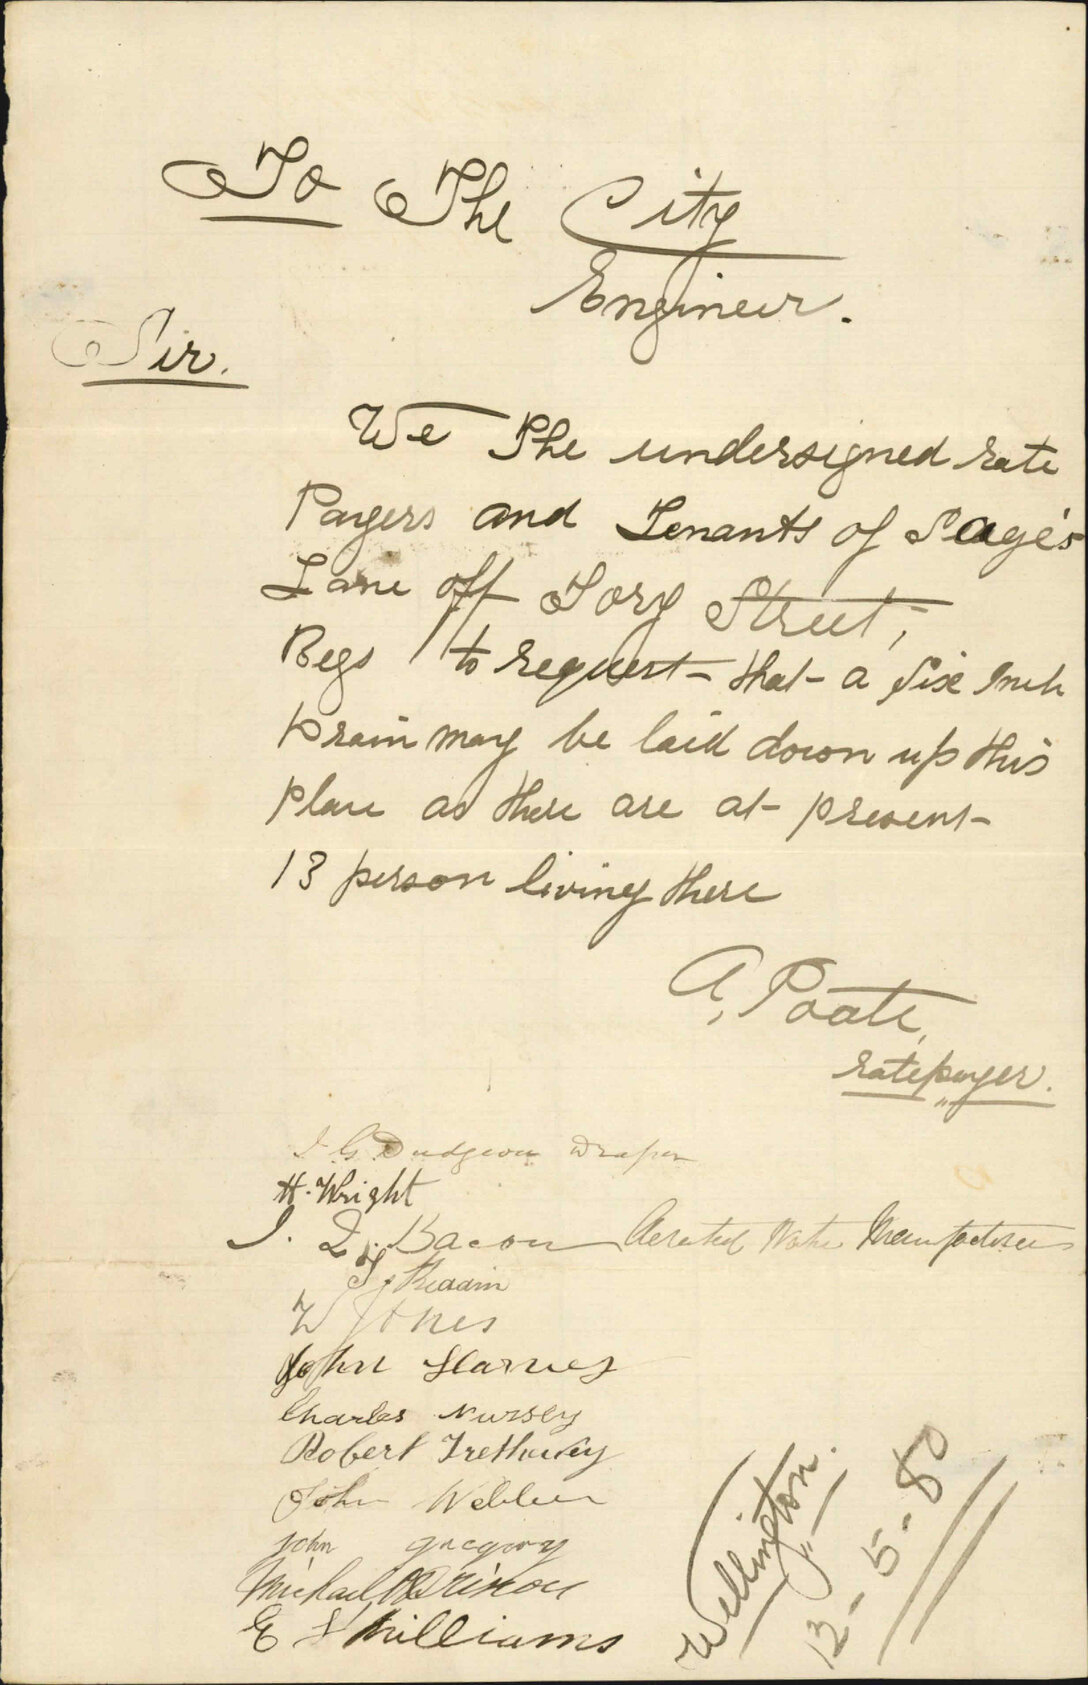 To The City
Engineer.
Sir.
We The undersigned rate
Payers and Tenants of Sage's
Lane off Tory Street;
Begs to request that a Six Inch
Drain may be laid down up this
place as there are at present
13 person living there
A, Poate,
ratepayer.
J. G. Dudgeon Draper
H. Wright
J. Bacon Aerated Water Manufacturer
W Jones
John
Charles Nursey
Robert Trethuey
John Webber
John gregory
Michael
E Williams
Wellington.
13-5-80